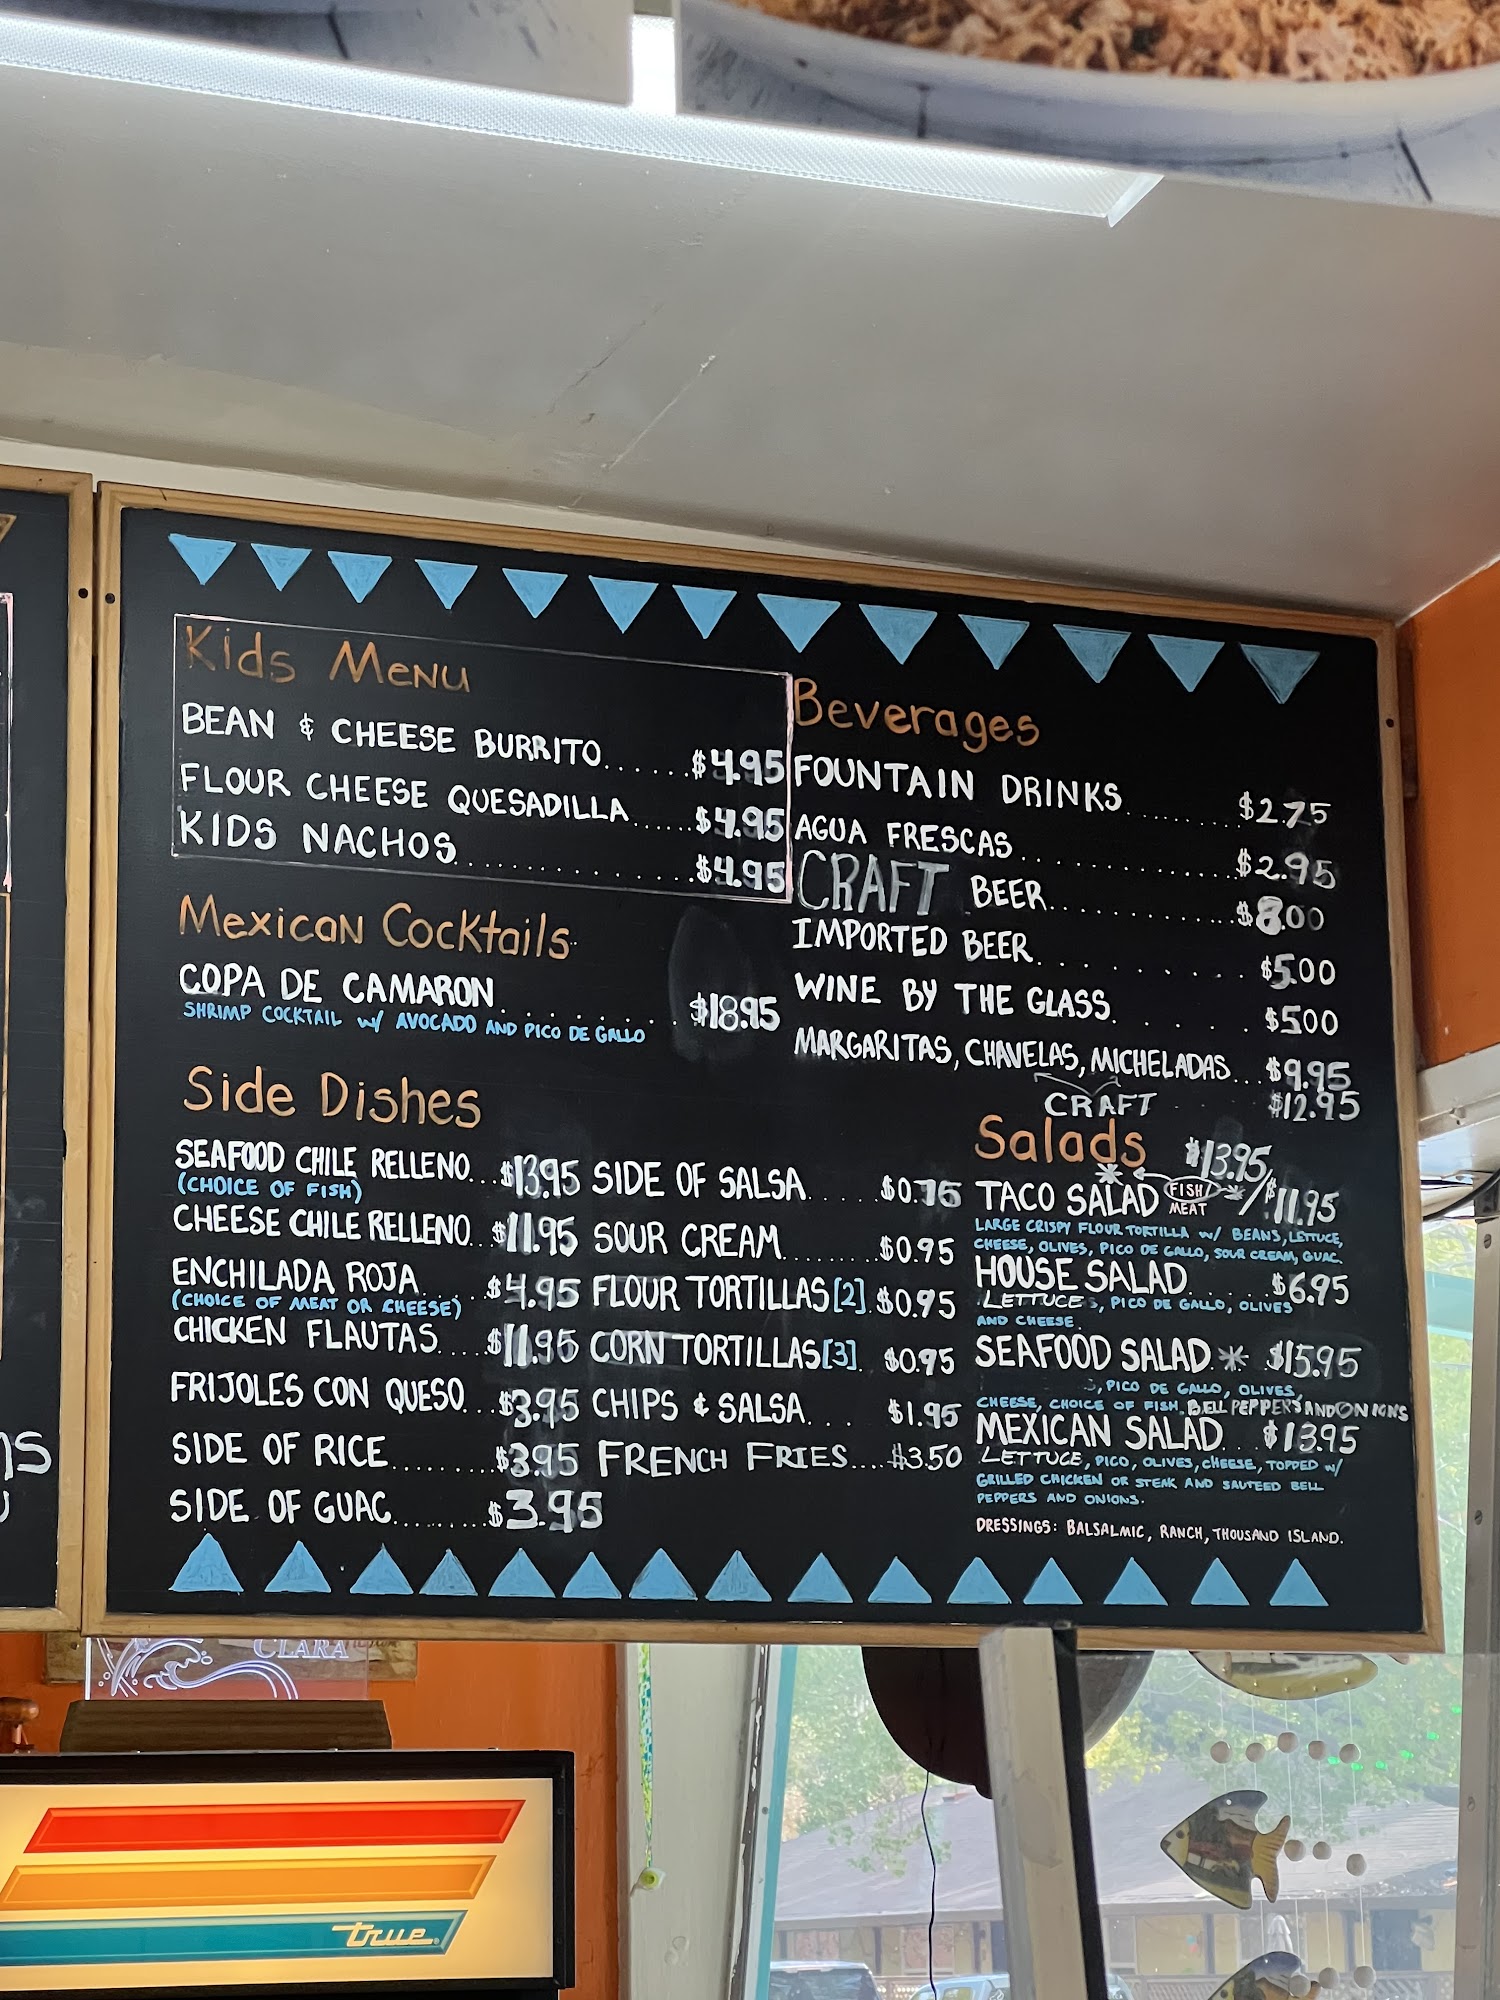 Kids Menu
BEAN & CHEESE BURRITO......$4.95
FLOUR CHEESE QUESADILLA......$4.95
KIDS NACHOS.................$4.95
Mexican Cocktails
COPA DE CAMARON.........$18.95
SHRIMP COCKTAIL w/ AVOCADO AND PICO DE GALLO
Beverages
FOUNTAIN DRINKS.........$2.75
AGUA FRESCAS..............$2.95
CRAFT BEER.............$8.00
IMPORTED BEER..........$5.00
WINE BY THE GLASS......$5.00
MARGARITAS, CHAVELAS, MICHELADAS...$9.95
CRAFT $12.95
Side Dishes
SEAFOOD CHILE RELLENO...$13.95
(CHOICE OF FISH)
CHEESE CHILE RELLENO...$11.95
ENCHILADA ROJA......$4.95
(CHOICE OF MEAT OR CHEESE)
CHICKEN FLAUTAS....$11.95
FRIJOLES CON QUESO...$3.95
SIDE OF RICE.........$3.95
SIDE OF GUAC.........$3.95
SIDE OF SALSA......$0.75
SOUR CREAM........$0.95
FLOUR TORTILLAS[2].$0.95
CORN TORTILLAS[3]. $0.95
CHIPS & SALSA.... $1.95
FRENCH FRIES....$3.50
Salads $13.95
TACO SALAD FISH/ MEAT /$11.95
LARGE CRISPY FLOUR TORTILLA w/ BEANS, LETTUCE,
CHEESE, OLIVES, PICO DE GALLO, SOUR CREAM, GUAC.
HOUSE SALAD......$6.95
LETTUCE, PICO DE GALLO, OLIVES
AND CHEESE.
SEAFOOD SALAD.* $15.95
, PICO DE GALLO, OLIVES,
CHEESE, CHOICE OF FISH. BELL PEPPERS AND ONIONS
MEXICAN SALAD...$13.95
LETTUCE, PICO, OLIVES, CHEESE, TOPPED w/
GRILLED CHICKEN OR STEAK AND SAUTEED BELL
PEPPERS AND ONIONS.
DRESSINGS: BALSALMIC, RANCH, THOUSAND ISLAND.
CLARA
true